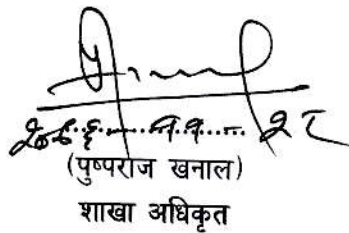 २०८६.....११.... २८
(पुष्पराज खनाल)
शाखा अधिकृत